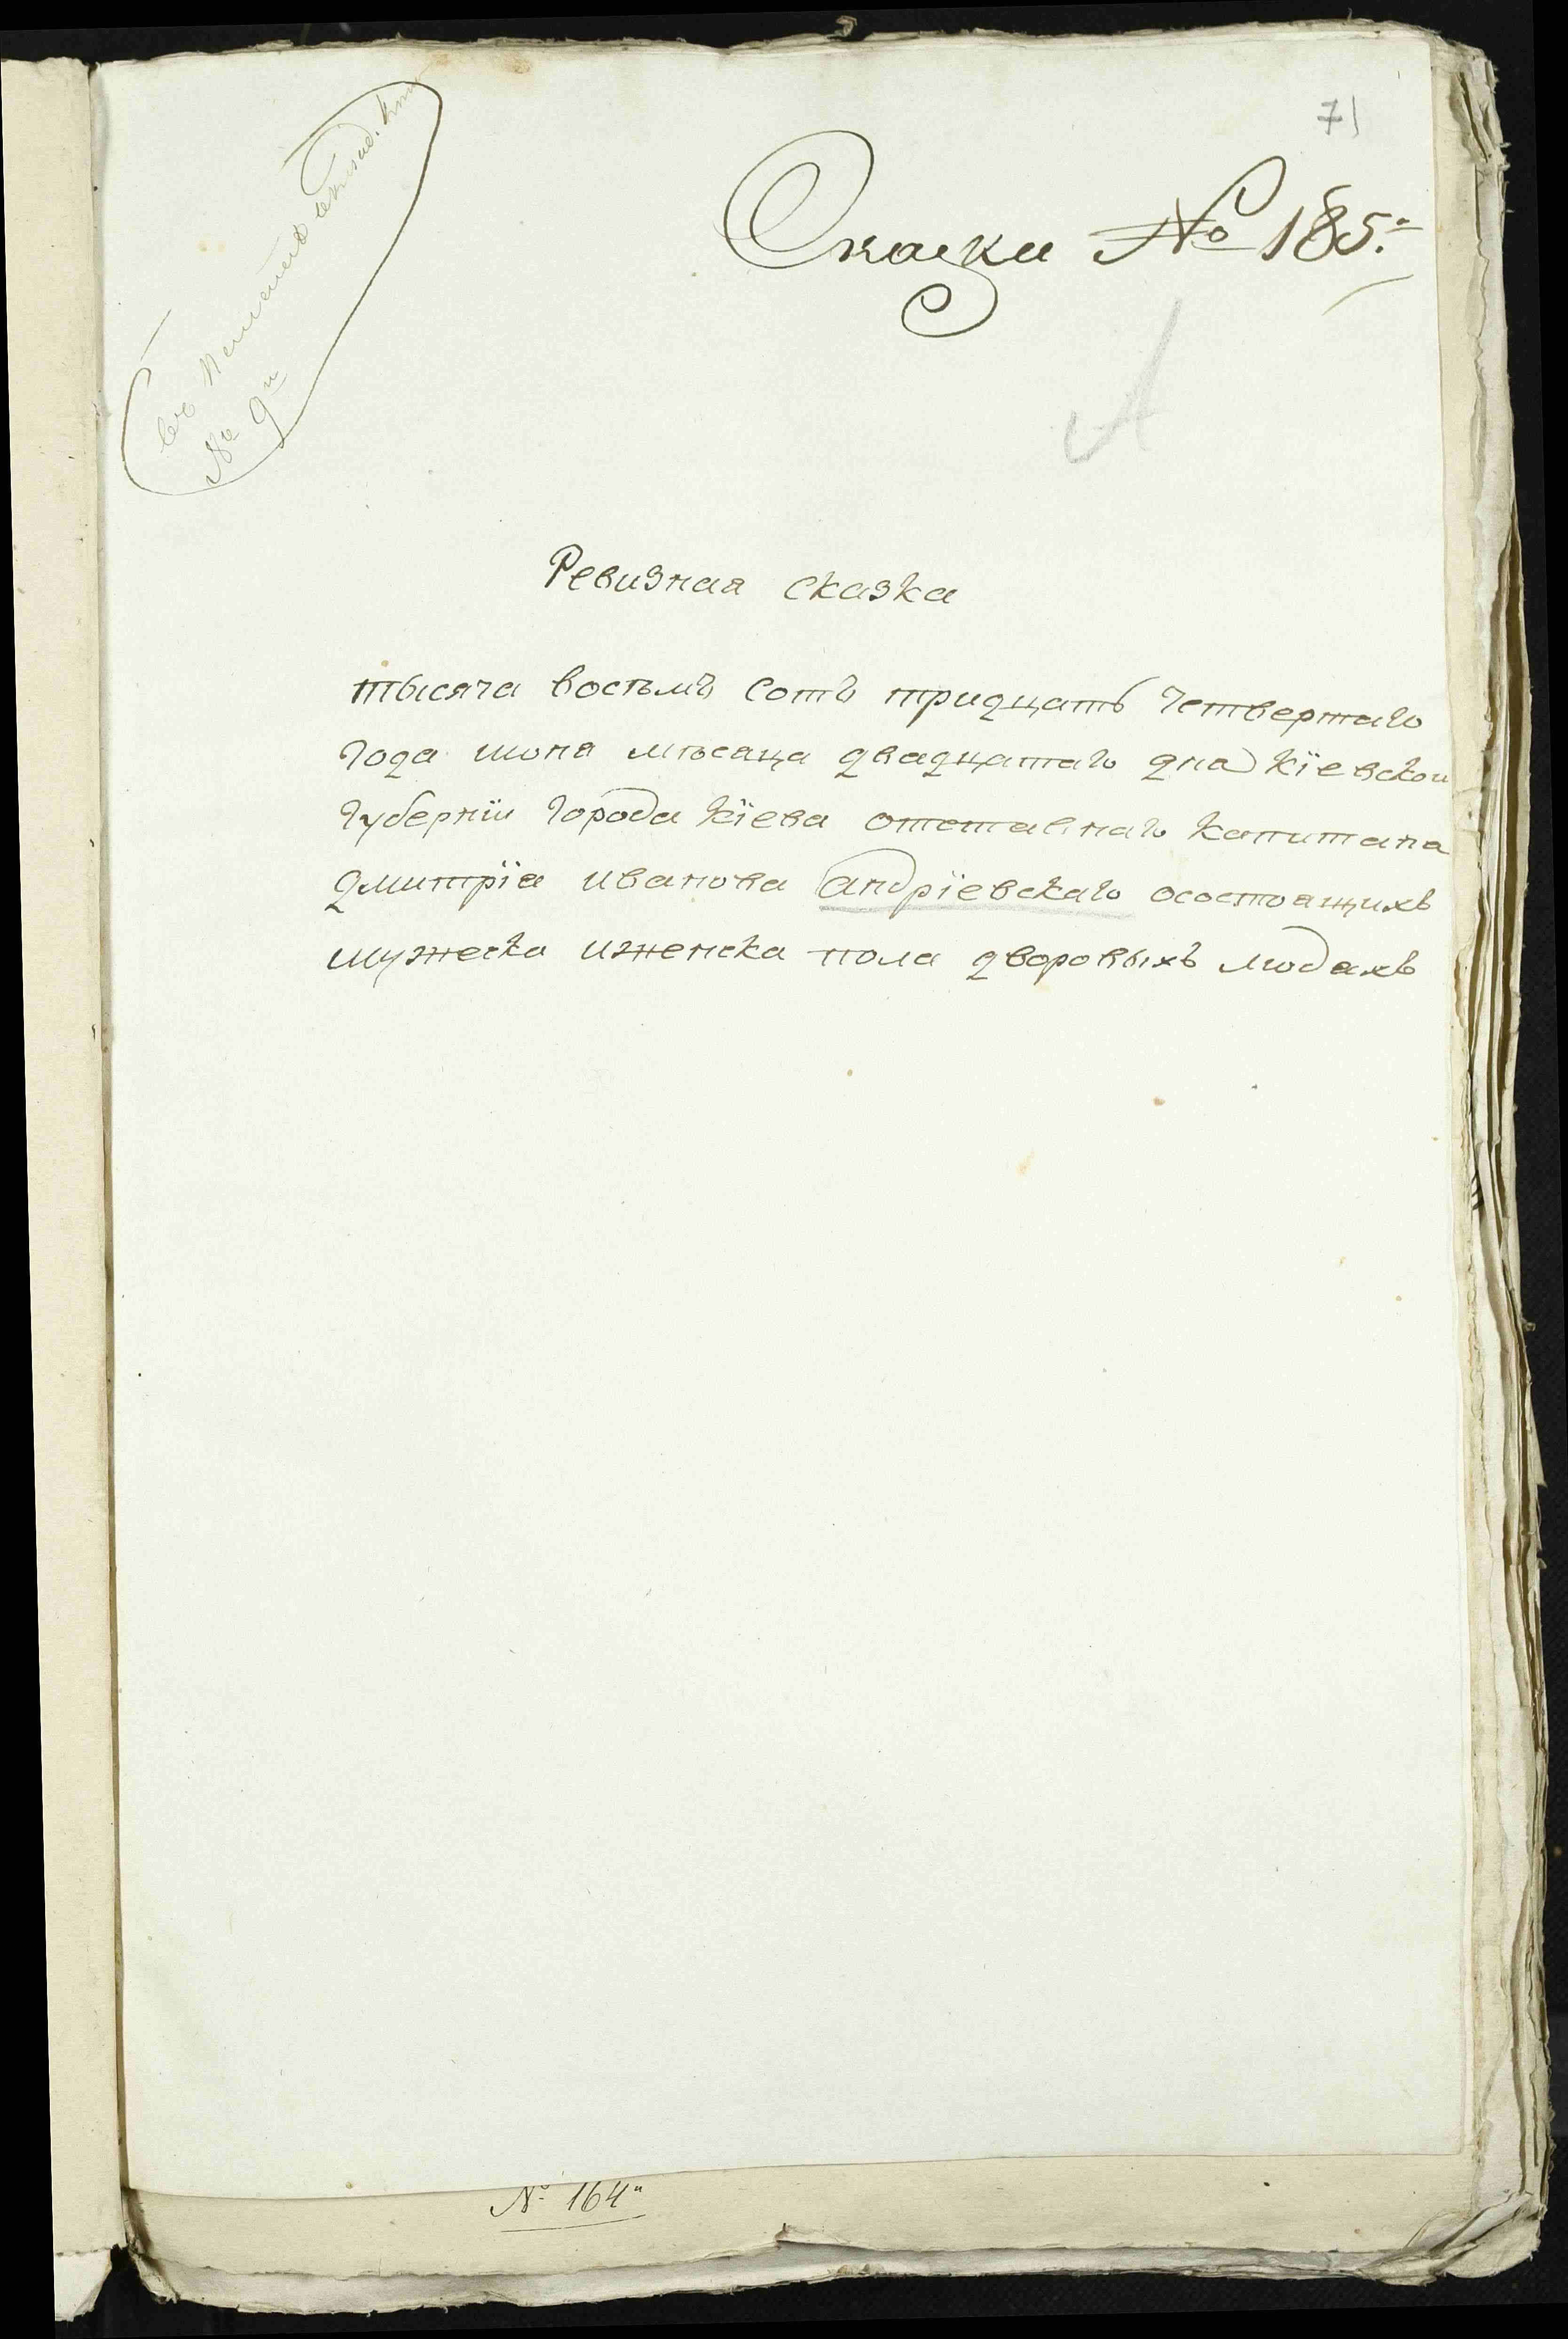 71
Сказки № 185.
№ 9
А
Ревизная сказка
тысяча восьмъ сотъ тридцать четвертаго
года июня мѣсяца двадцатаго дня Кїевской
губернїи города Кїева отставнаго капитана
дмитрїя иванова андрїевскаго осостоящихъ
мужеска иженска пола дворовыхъ людяхъ
№ 164